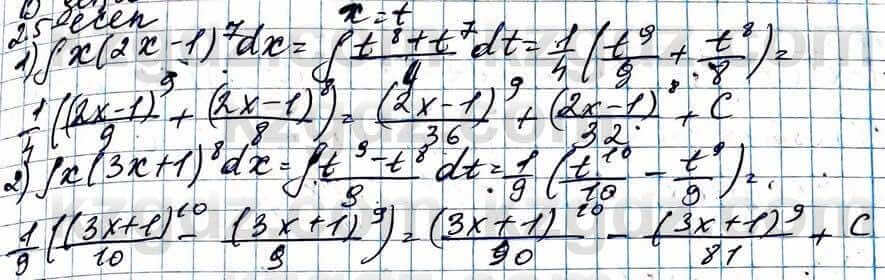 25 есеп
x = t
1) ∫x(2x-1)⁷dx = ∫(t⁸+t⁷)/4 dt = 1/4 (t⁹/9 + t⁸/8) =
1/4 ((2x-1)⁹/9 + (2x-1)⁸/8) = (2x-1)⁹/36 + (2x-1)⁸/32 + C
2) ∫x(3x+1)⁸dx = ∫(t⁹-t⁸)/9 dt = 1/9 (t¹⁰/10 - t⁹/9) =
1/9 ((3x+1)¹⁰/10 - (3x+1)⁹/9) = (3x+1)¹⁰/90 - (3x+1)⁹/81 + C